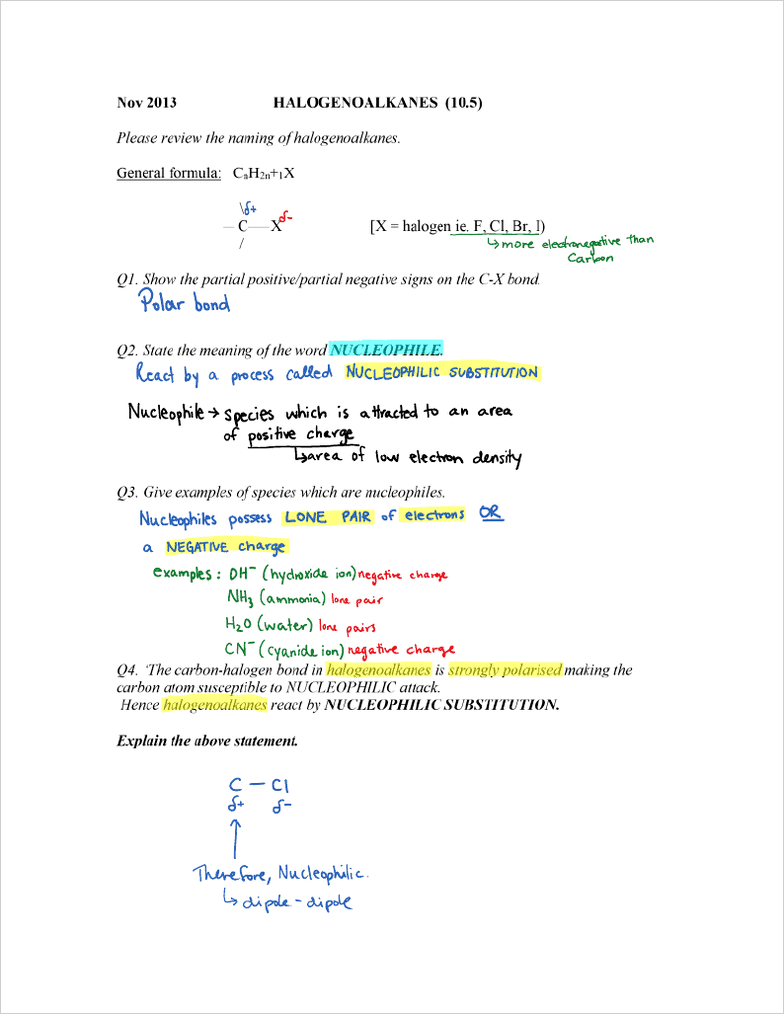 Nov 2013 HALOGENOALKANES (10.5)
Please review the naming of halogenoalkanes.
General formula: CnH2n+1X
\δ+ δ-
— C — X [X = halogen ie. F, Cl, Br, I)
/ ↳ more electronegative than
Carbon
Q1. Show the partial positive/partial negative signs on the C-X bond.
Polar bond
Q2. State the meaning of the word NUCLEOPHILE.
React by a process called NUCLEOPHILIC SUBSTITUTION
Nucleophile → species which is attracted to an area
of positive charge
↳ area of low electron density
Q3. Give examples of species which are nucleophiles.
Nucleophiles possess LONE PAIR of electrons OR
a NEGATIVE charge
examples: OH⁻ (hydroxide ion) negative charge
NH₃ (ammonia) lone pair
H₂O (water) lone pairs
CN⁻ (cyanide ion) negative charge
Q4. ‘The carbon-halogen bond in halogenoalkanes is strongly polarised making the
carbon atom susceptible to NUCLEOPHILIC attack.
Hence halogenoalkanes react by NUCLEOPHILIC SUBSTITUTION.
Explain the above statement.
C — Cl
δ+ δ-
Therefore, Nucleophilic.
↳ dipole-dipole